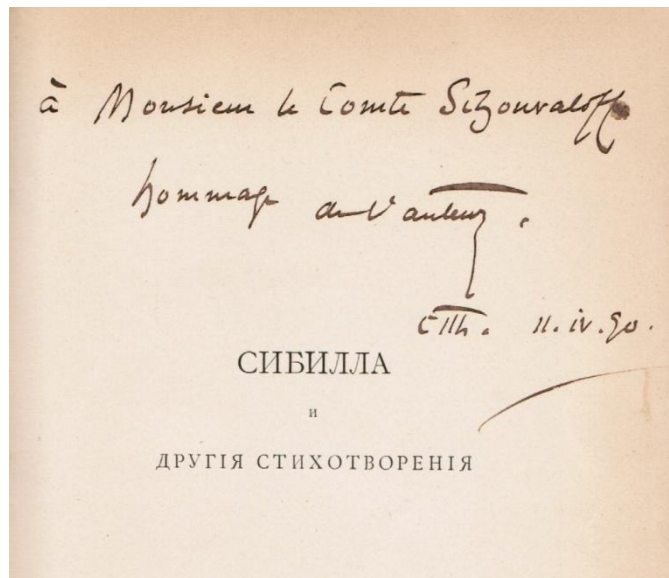 à Monsieur le Comte Schouvaloff
hommage de l'auteur.
11. iv. 90.
СИБИЛЛА
и
ДРУГІЯ СТИХОТВОРЕНІЯ